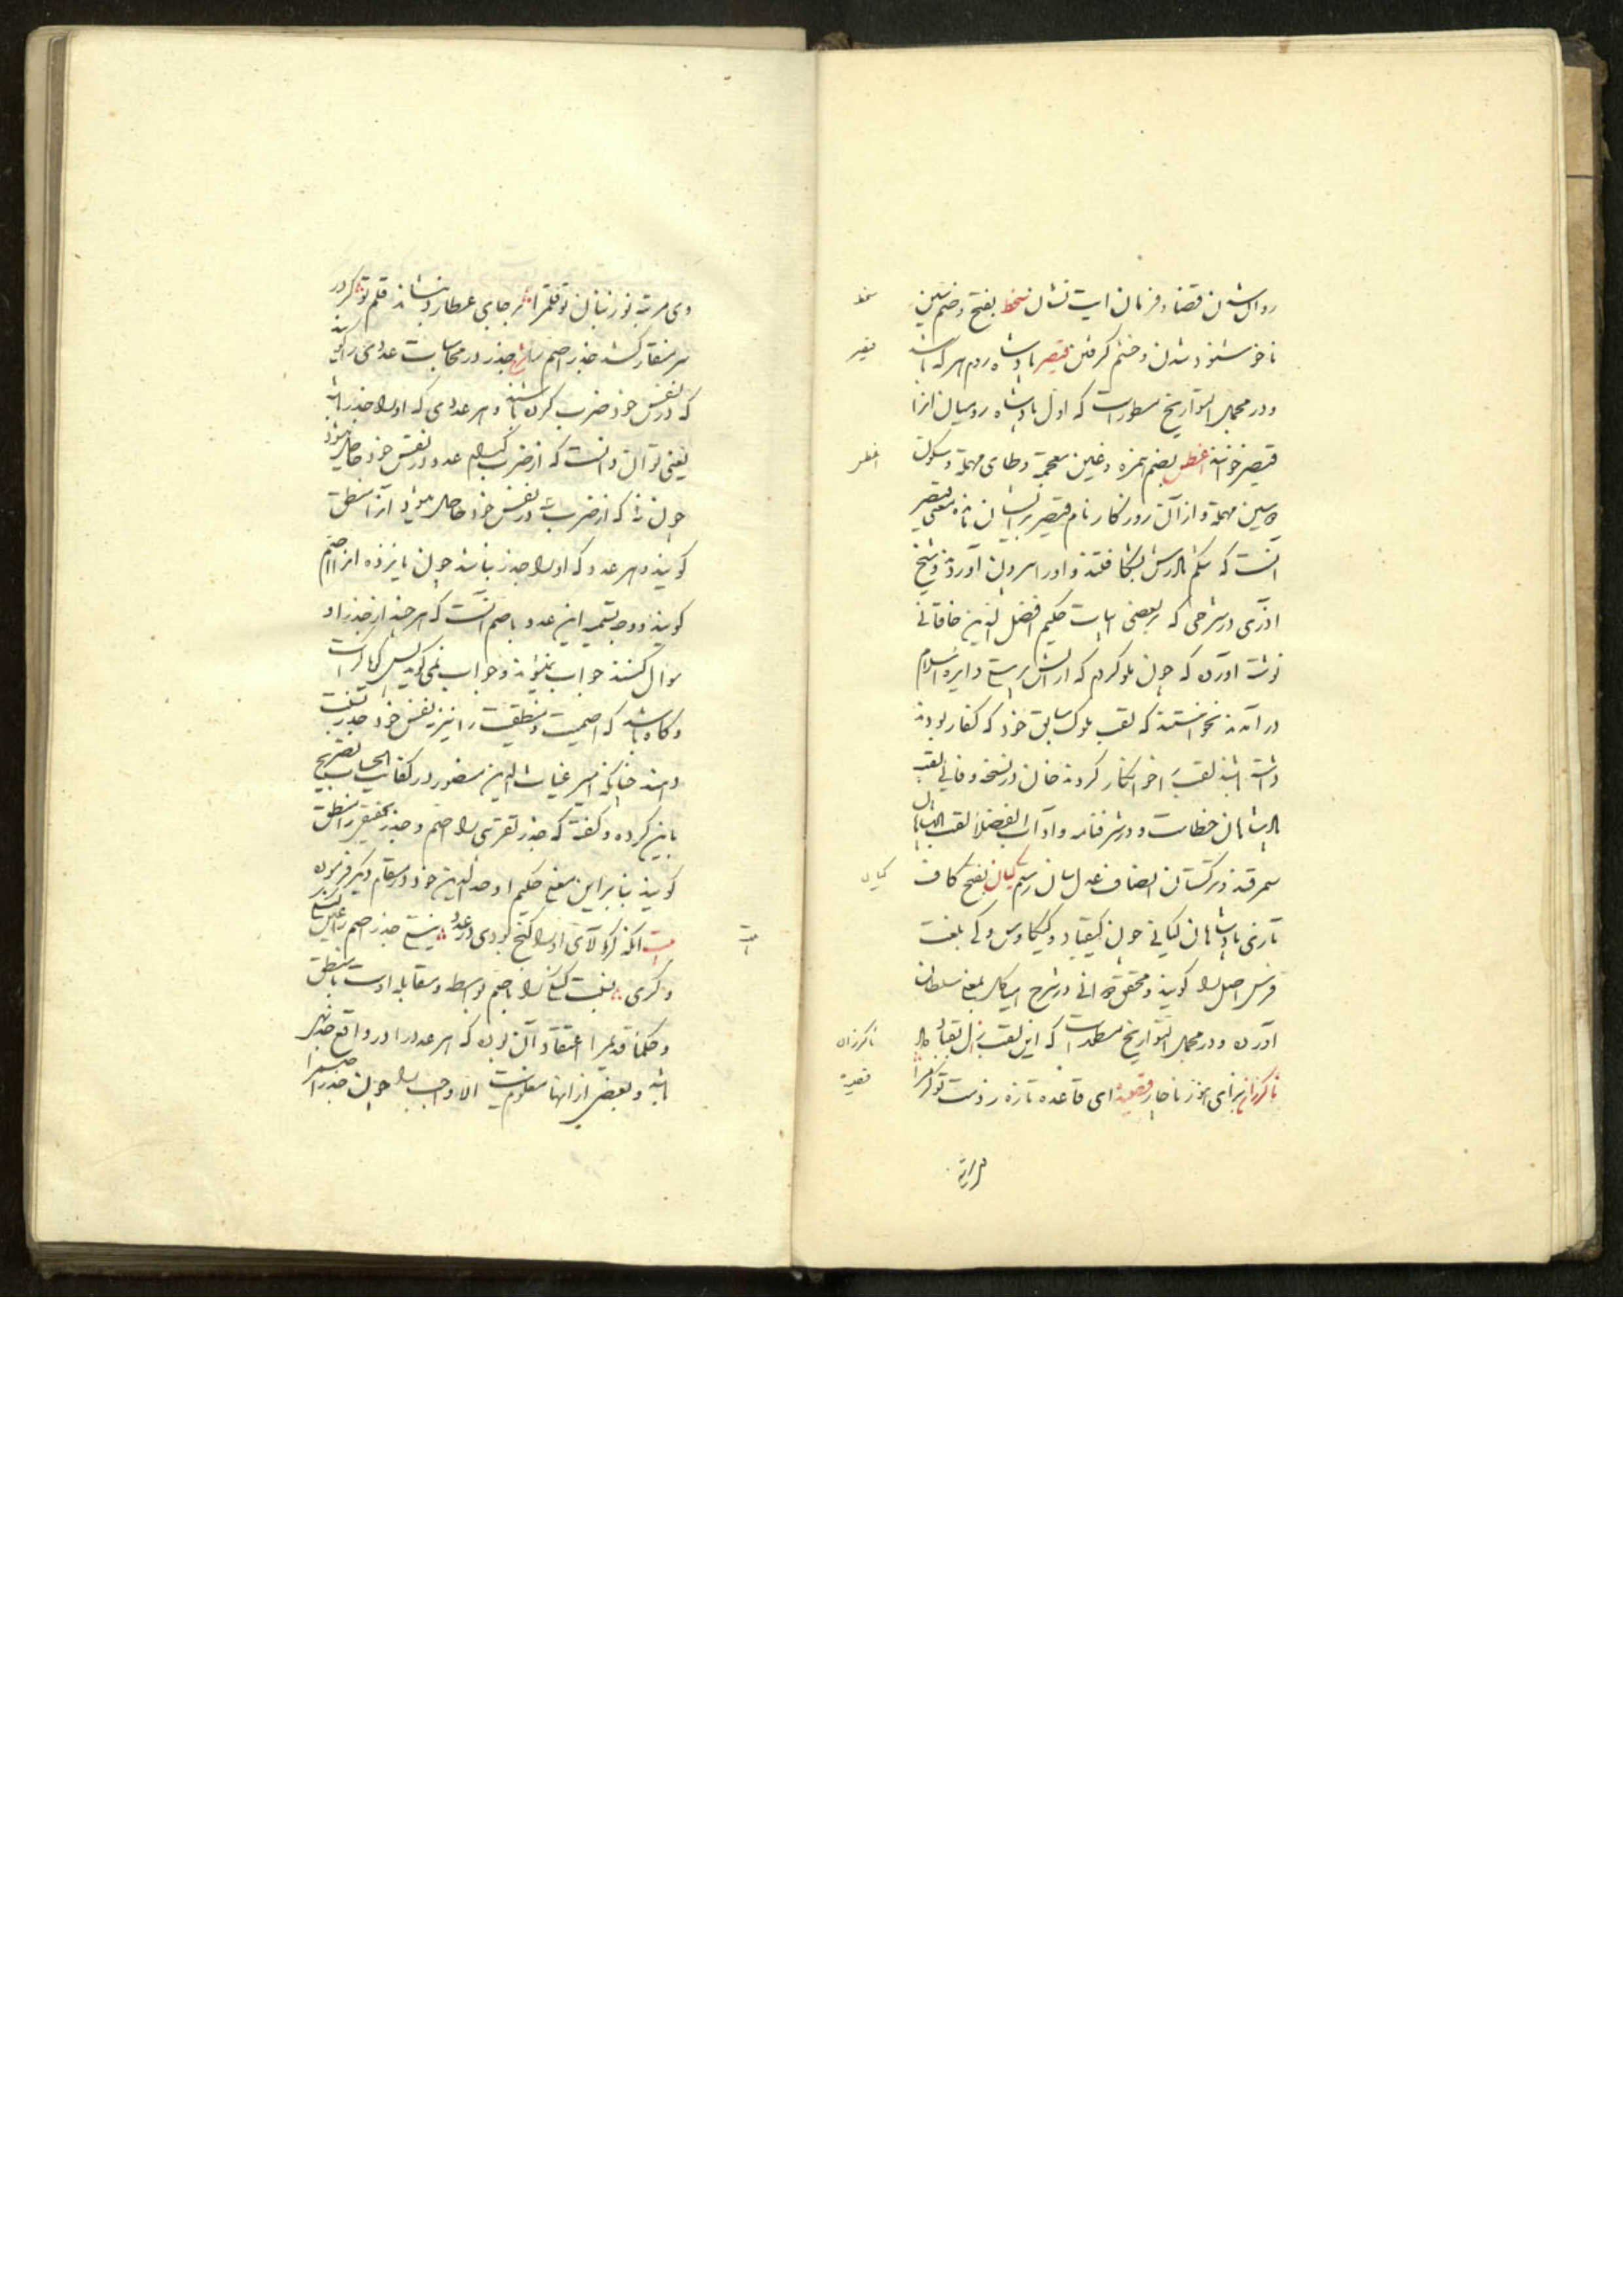 روان شدن قضا و فرمان ایت نشان سخط بفتح و ضم سین
ناخوشنود شدن و خشم گرفتن قیصر پادشاه روم هر که باشد
و در مجمل التواریخ مسطور است که اول پادشاه رومیان انرا
قیصر خواندند اغطس بضم همزه و غین معجمه و طای مهمله و سکون
سین مهمله و از آن روزگار نام قیصر بر ایشان بماند و معنی قیصر
آنست که شکم مادرش بشکافتند و اورا بیرون آوردند و شیخ
آذری در شرحی که بر بعضی ابیات حکیم افضل الدین خاقانی
نوشته آورده که چون ملوک روم که از آتش پرستی در دایره اسلام
در آمدند نخواستند که لقب ملوک سابق خود که کفار بودند
داشته باشند لقب اختیار کردند خان در نسخه وفائی لقب
پادشاهان خطاست و در شرفنامه و اداب الفضلا لقب پادشاهان
سمرقند و ترکستان انصاف عدل سان رسم کیان بفتح کاف
تازی پادشاهان کیانی چون کیقباد و کیکاوس و کی بلغت
فرس اصل را گویند و محقق دوانی در شرح هیاکل بمعنی سلطان
آورده و در مجمل التواریخ مسطور است که این لقب زال بقباد داد
ناگزران برای هنوز ناچار قضیه ای قاعده تازه زدست توکفرا
سخط
قیصر
اغطس
کیان
ناگزران
قضیه
وی مرتبه نور زبان تو قلمرا بر جای عطارد بنشاند قلم تو گر در
سر منقار کشد جذر اصم را جذر در محاسبات عددی را گویند
که در نفس خود ضرب کرده باشند و هر عددی که او را جذر باشد
یعنی توان دانست که از ضرب کدام عدد در نفس خود حاصل میشود
چون نه که از ضرب سه در نفس خود حاصل میشود آنرا منطق
گویند و هر عدد که او را جذر نباشد چون پانزده انرا اصم
گویند و وجه تسمیه این عدد باصم آنست که هر چند از جذر او
سوال کنند جواب نمیشنوند و جواب نمی گوید پس گویا کر است
و گاه باشد که اصمیت و منطقیت را نیز بنفس خود جذر نسبت
دهند چنانکه امیر غیاث الدین منصور در کفایت الحساب تصریح
باین کرده و گفته که جذر تقریبی را اصم و جذر تحقیقی را منطق
گویند بنابراین معنی حکیم اوحد الدین خود در مقام دیگر فرموده
بیت آنکه گر آلای او را گنج بودی در عدد نیستی جذر اصم را عیب گنگی
و کری نسبت گنگی را باصم بواسطه مقابله اوست با منطق
و حکما قدیم را اعتقاد آن بوده که هر عدد را در واقع جذر
باشد و بعضی از انها معلوم نیست الا واجب را چون جذر اصم را
بیت